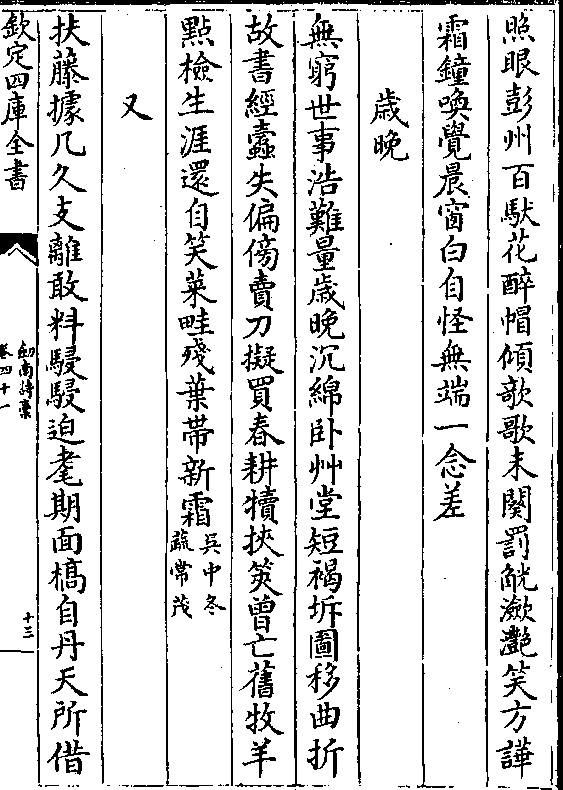 照眼彭州百馱花醉帽傾欹歌未闋罰觥瀲灔笑方譁
霜鐘喚覺晨窗白自怪無端一念差
歳晩
無窮世事浩難量歳晚沉綿卧艸堂短褐坼圖移曲折
故書經蠧失偏傍賣刀擬買春耕犢挾筴曽亡舊牧羊
點檢生涯還自笑菜畦殘葉帶新霜吳中冬蔬常茂
又
扶藤據几久支離敢料駸駸迫耄期面槁自丹天所借
欽定四庫全書
劍南詩稾
卷四十一
十三